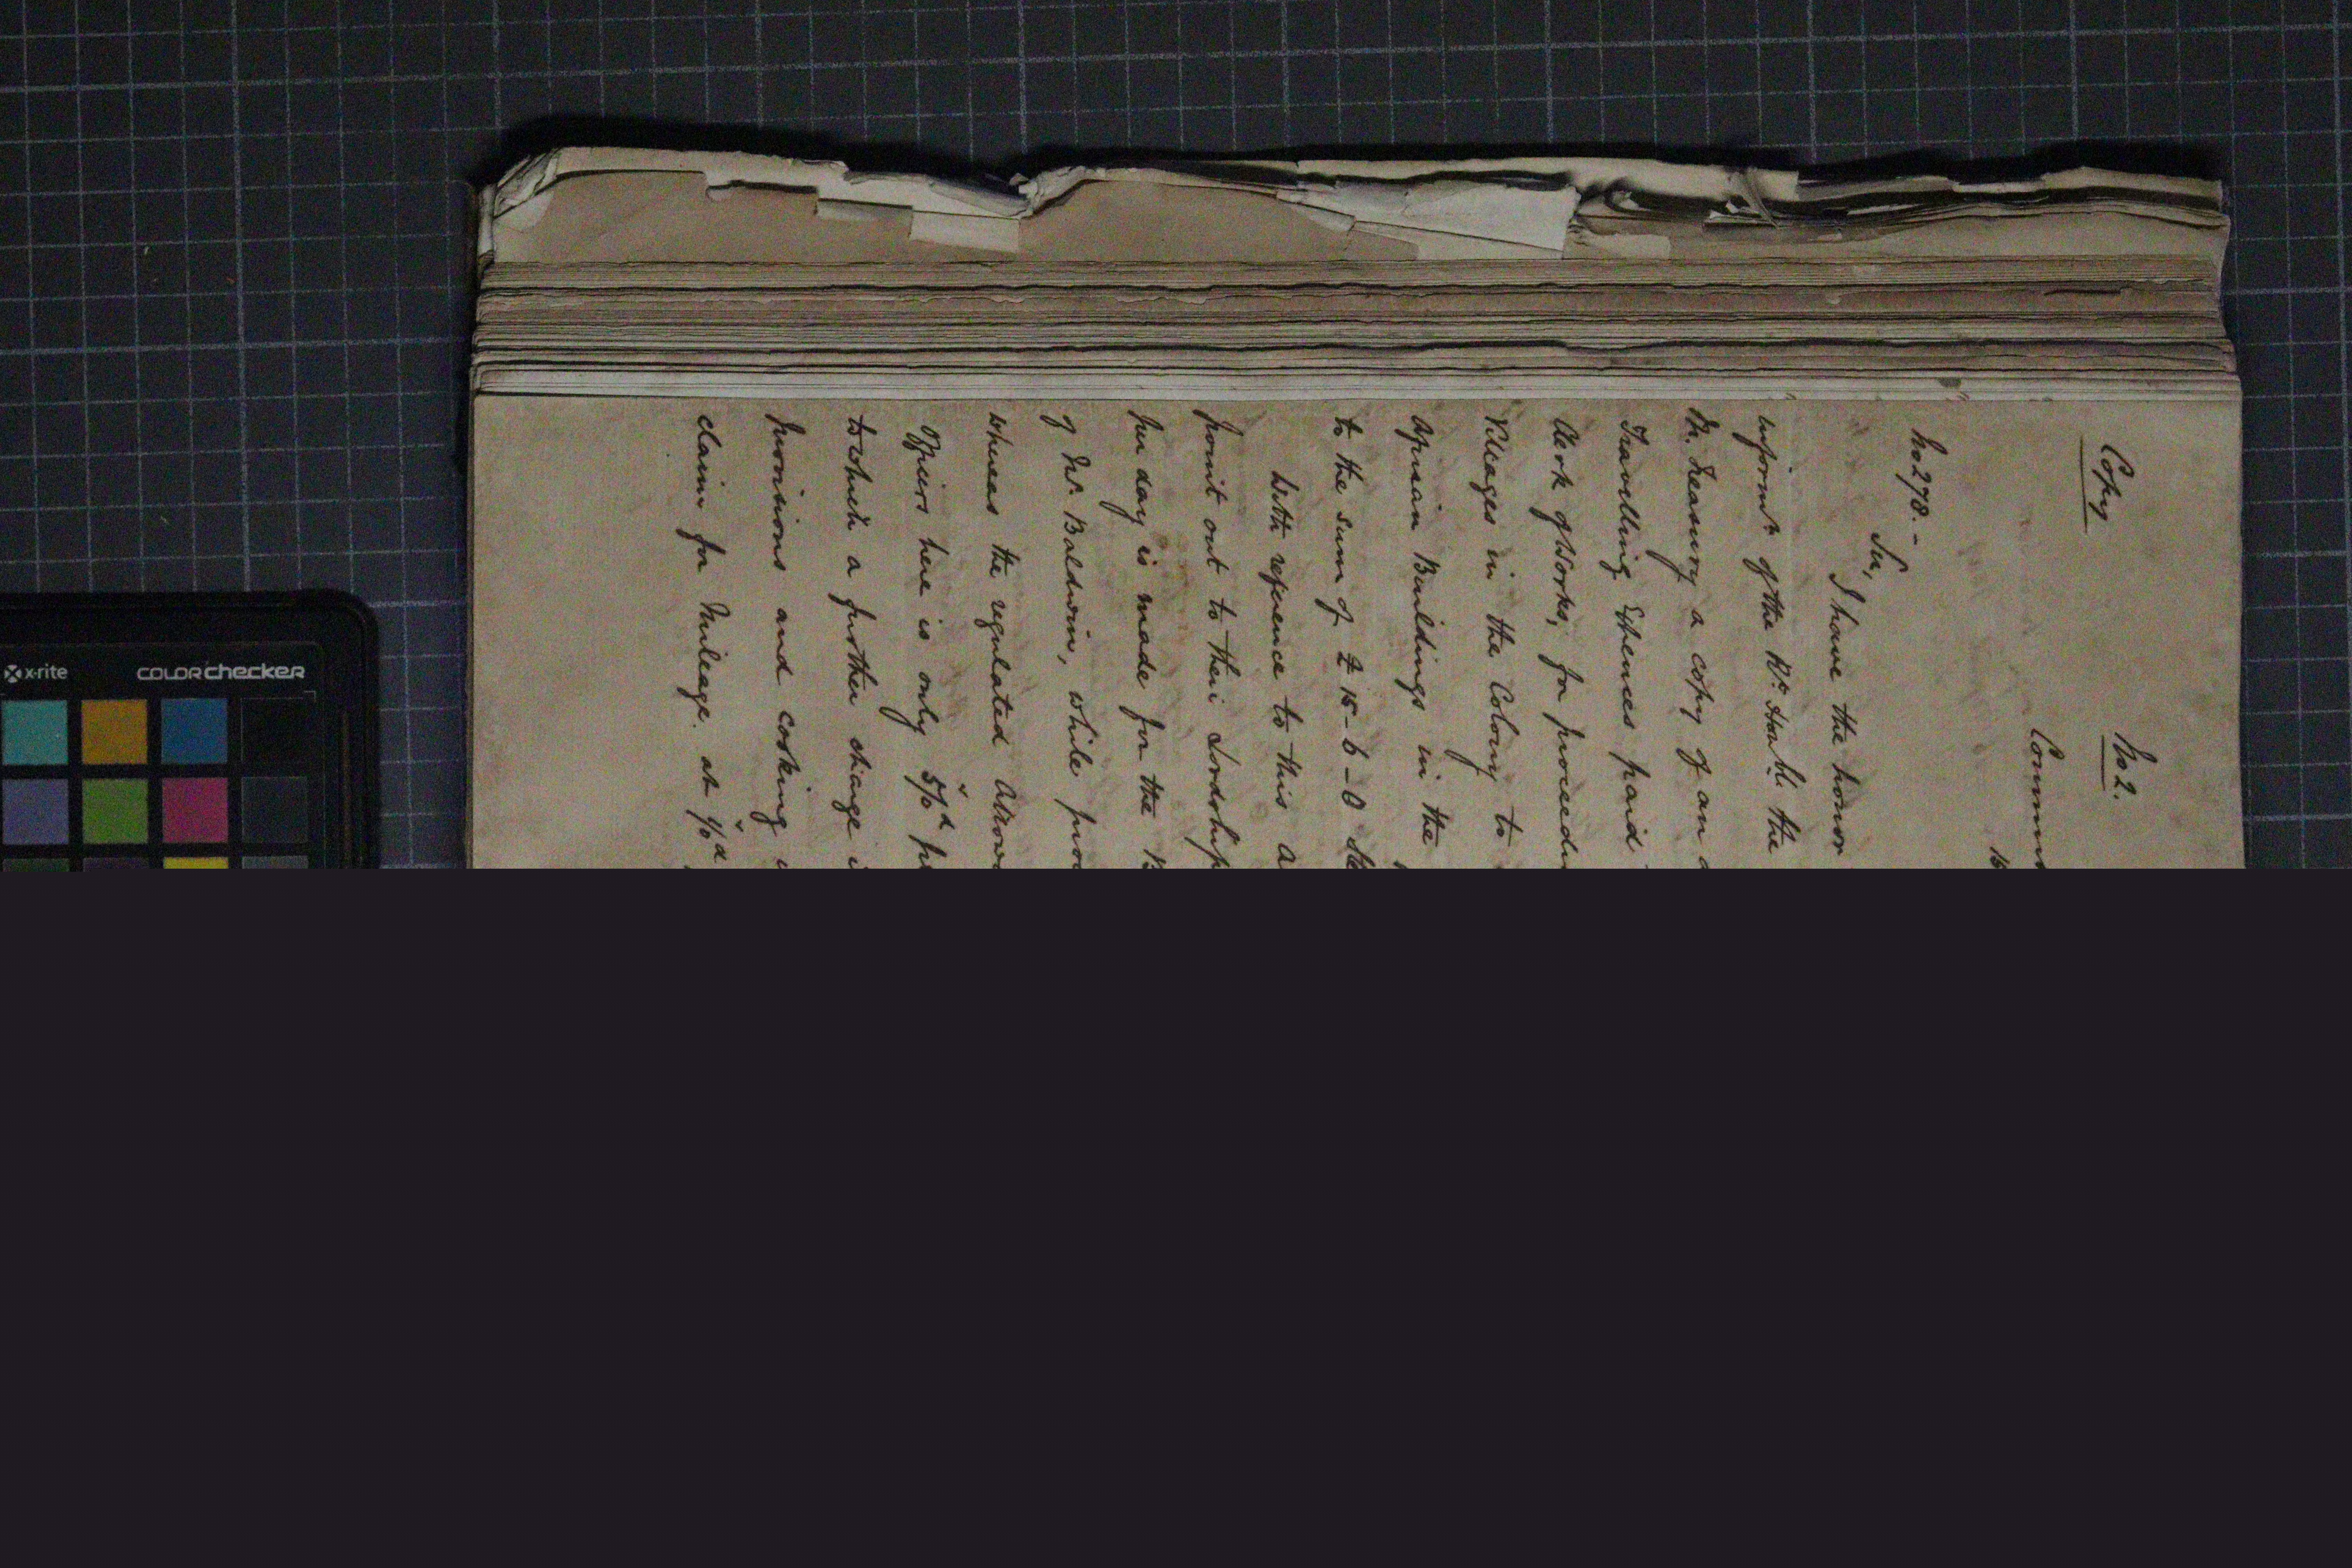 Copy
No 2.
No 278. -
Sir,
I have the honor
inform^n of the R^t. Hon^bl. the
M. Treasury a copy of an
Travelling Expences paid
Clerk of Works, for proceedi
Villages in the Colony to
African Buildings in the
to the sum of £ 15 - 6 - 0
With reference to this a
point out to their Lordship
per day is made for the
of Mr. Baldwin, while pro
whereas the regulated Allow
Officers here is only 5/0^d
to which a further charge
provisions and cooking
claim for Mileage. at 1/0^d
x-rite
COLORchecker